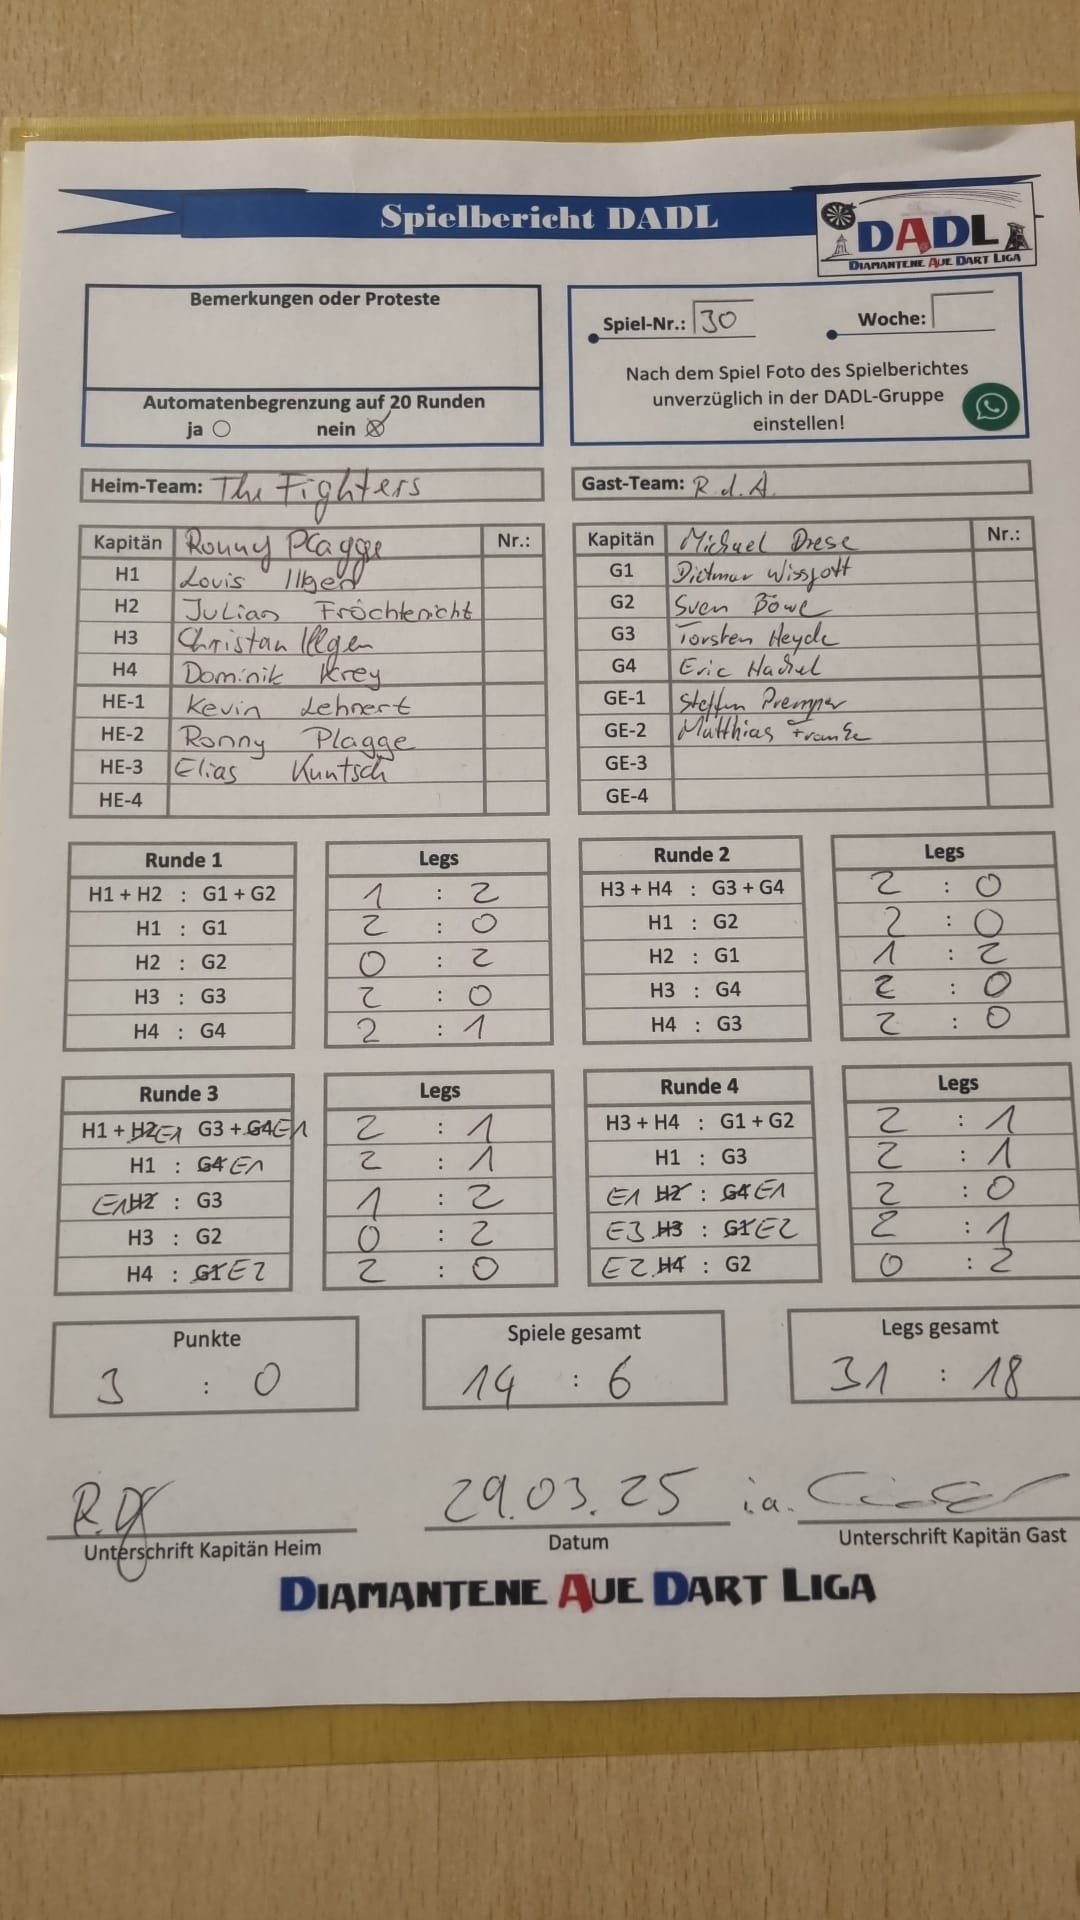 Spielbericht DADL
DADL
DIAMANTENE AUE DART LIGA
Bemerkungen oder Proteste
Automatenbegrenzung auf 20 Runden
ja nein
Spiel-Nr.: 30 Woche:
Nach dem Spiel Foto des Spielberichtes
unverzüglich in der DADL-Gruppe
einstellen!
Heim-Team: The Fighters
Gast-Team: R.d.A.
Kapitän Ronny Plagge Nr.:
H1 Louis Illgen
H2 Julian Fröchtenicht
H3 Christan Illgen
H4 Dominik Krey
HE-1 Kevin Lehnert
HE-2 Ronny Plagge
HE-3 Elias Kuntsch
HE-4
Kapitän Michael Drese Nr.:
G1 Dietmar
G2 Sven Böwe
G3 Torsten Heyde
G4 Eric
GE-1 Steffen
GE-2 Matthias Franke
GE-3
GE-4
Runde 1 Legs
H1 + H2 : G1 + G2 1 : 2
H1 : G1 2 : 0
H2 : G2 0 : 2
H3 : G3 2 : 0
H4 : G4 2 : 1
Runde 2 Legs
H3 + H4 : G3 + G4 2 : 0
H1 : G2 2 : 0
H2 : G1 1 : 2
H3 : G4 2 : 0
H4 : G3 2 : 0
Runde 3 Legs
H1 + H2 E1 G3 + G4 E1 2 : 1
H1 : G4 E1 2 : 1
E1 H2 : G3 1 : 2
H3 : G2 0 : 2
H4 : G1 E2 2 : 0
Runde 4 Legs
H3 + H4 : G1 + G2 2 : 1
H1 : G3 2 : 1
E1 H2 : G4 E1 2 : 0
E3 H3 : G1 E2 2 : 1
E2 H4 : G2 0 : 2
Punkte
3 : 0
Spiele gesamt
14 : 6
Legs gesamt
31 : 18
29.03.25 i.a.
Unterschrift Kapitän Heim Datum Unterschrift Kapitän Gast
DIAMANTENE AUE DART LIGA